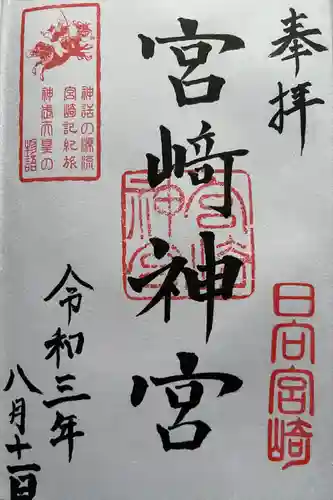 奉拝
日向宮崎
宮﨑神宮
宮崎神宮
神話の源流
宮崎記紀旅
神武天皇の
物語
令和三年
八月十一日